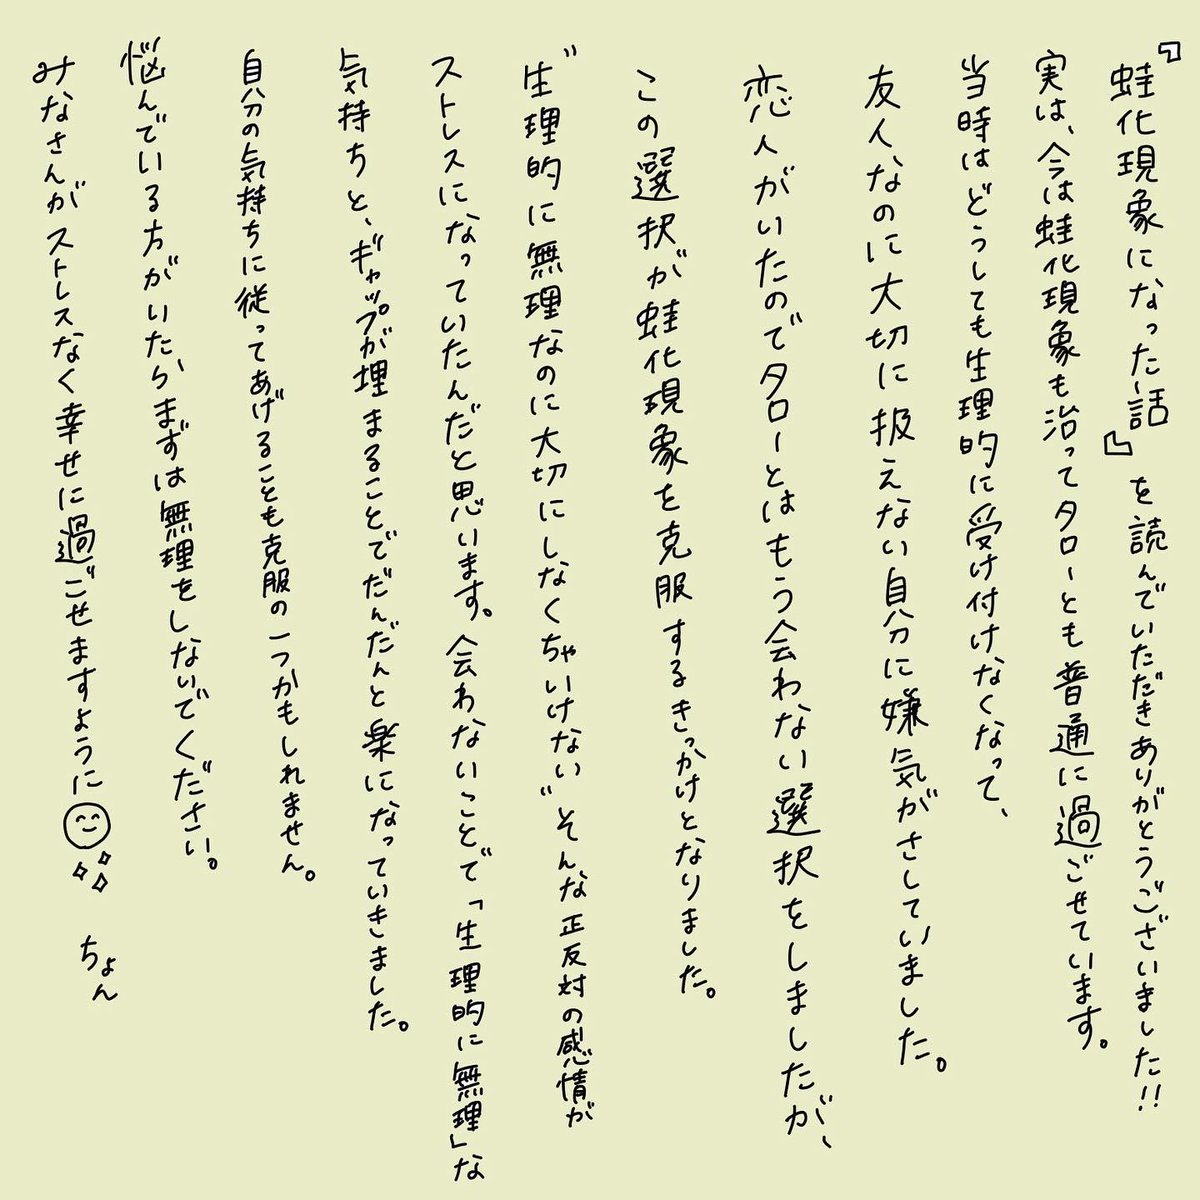 『蛙化現象になった話』を読んでいただきありがとうございました!!
実は、今は蛙化現象も治ってタローとも普通に過ごせています。
当時はどうしても生理的に受け付けなくなって、
友人なのに大切に扱えない自分に嫌気がさしていました。
恋人がいたのでタローとはもう会わない選択をしましたが、
この選択が蛙化現象を克服するきっかけとなりました。
"生理的に無理なのに大切にしなくちゃいけない"そんな正反対の感情が
ストレスになっていたんだと思います。会わないことで「生理的に無理」な
気持ちと、ギャップが埋まることでだんだんと楽になっていきました。
自分の気持ちに従ってあげることも克服の一つかもしれません。
悩んでいる方がいたらまずは無理をしないでください。
みなさんがストレスなく幸せに過ごせますように
ちょん